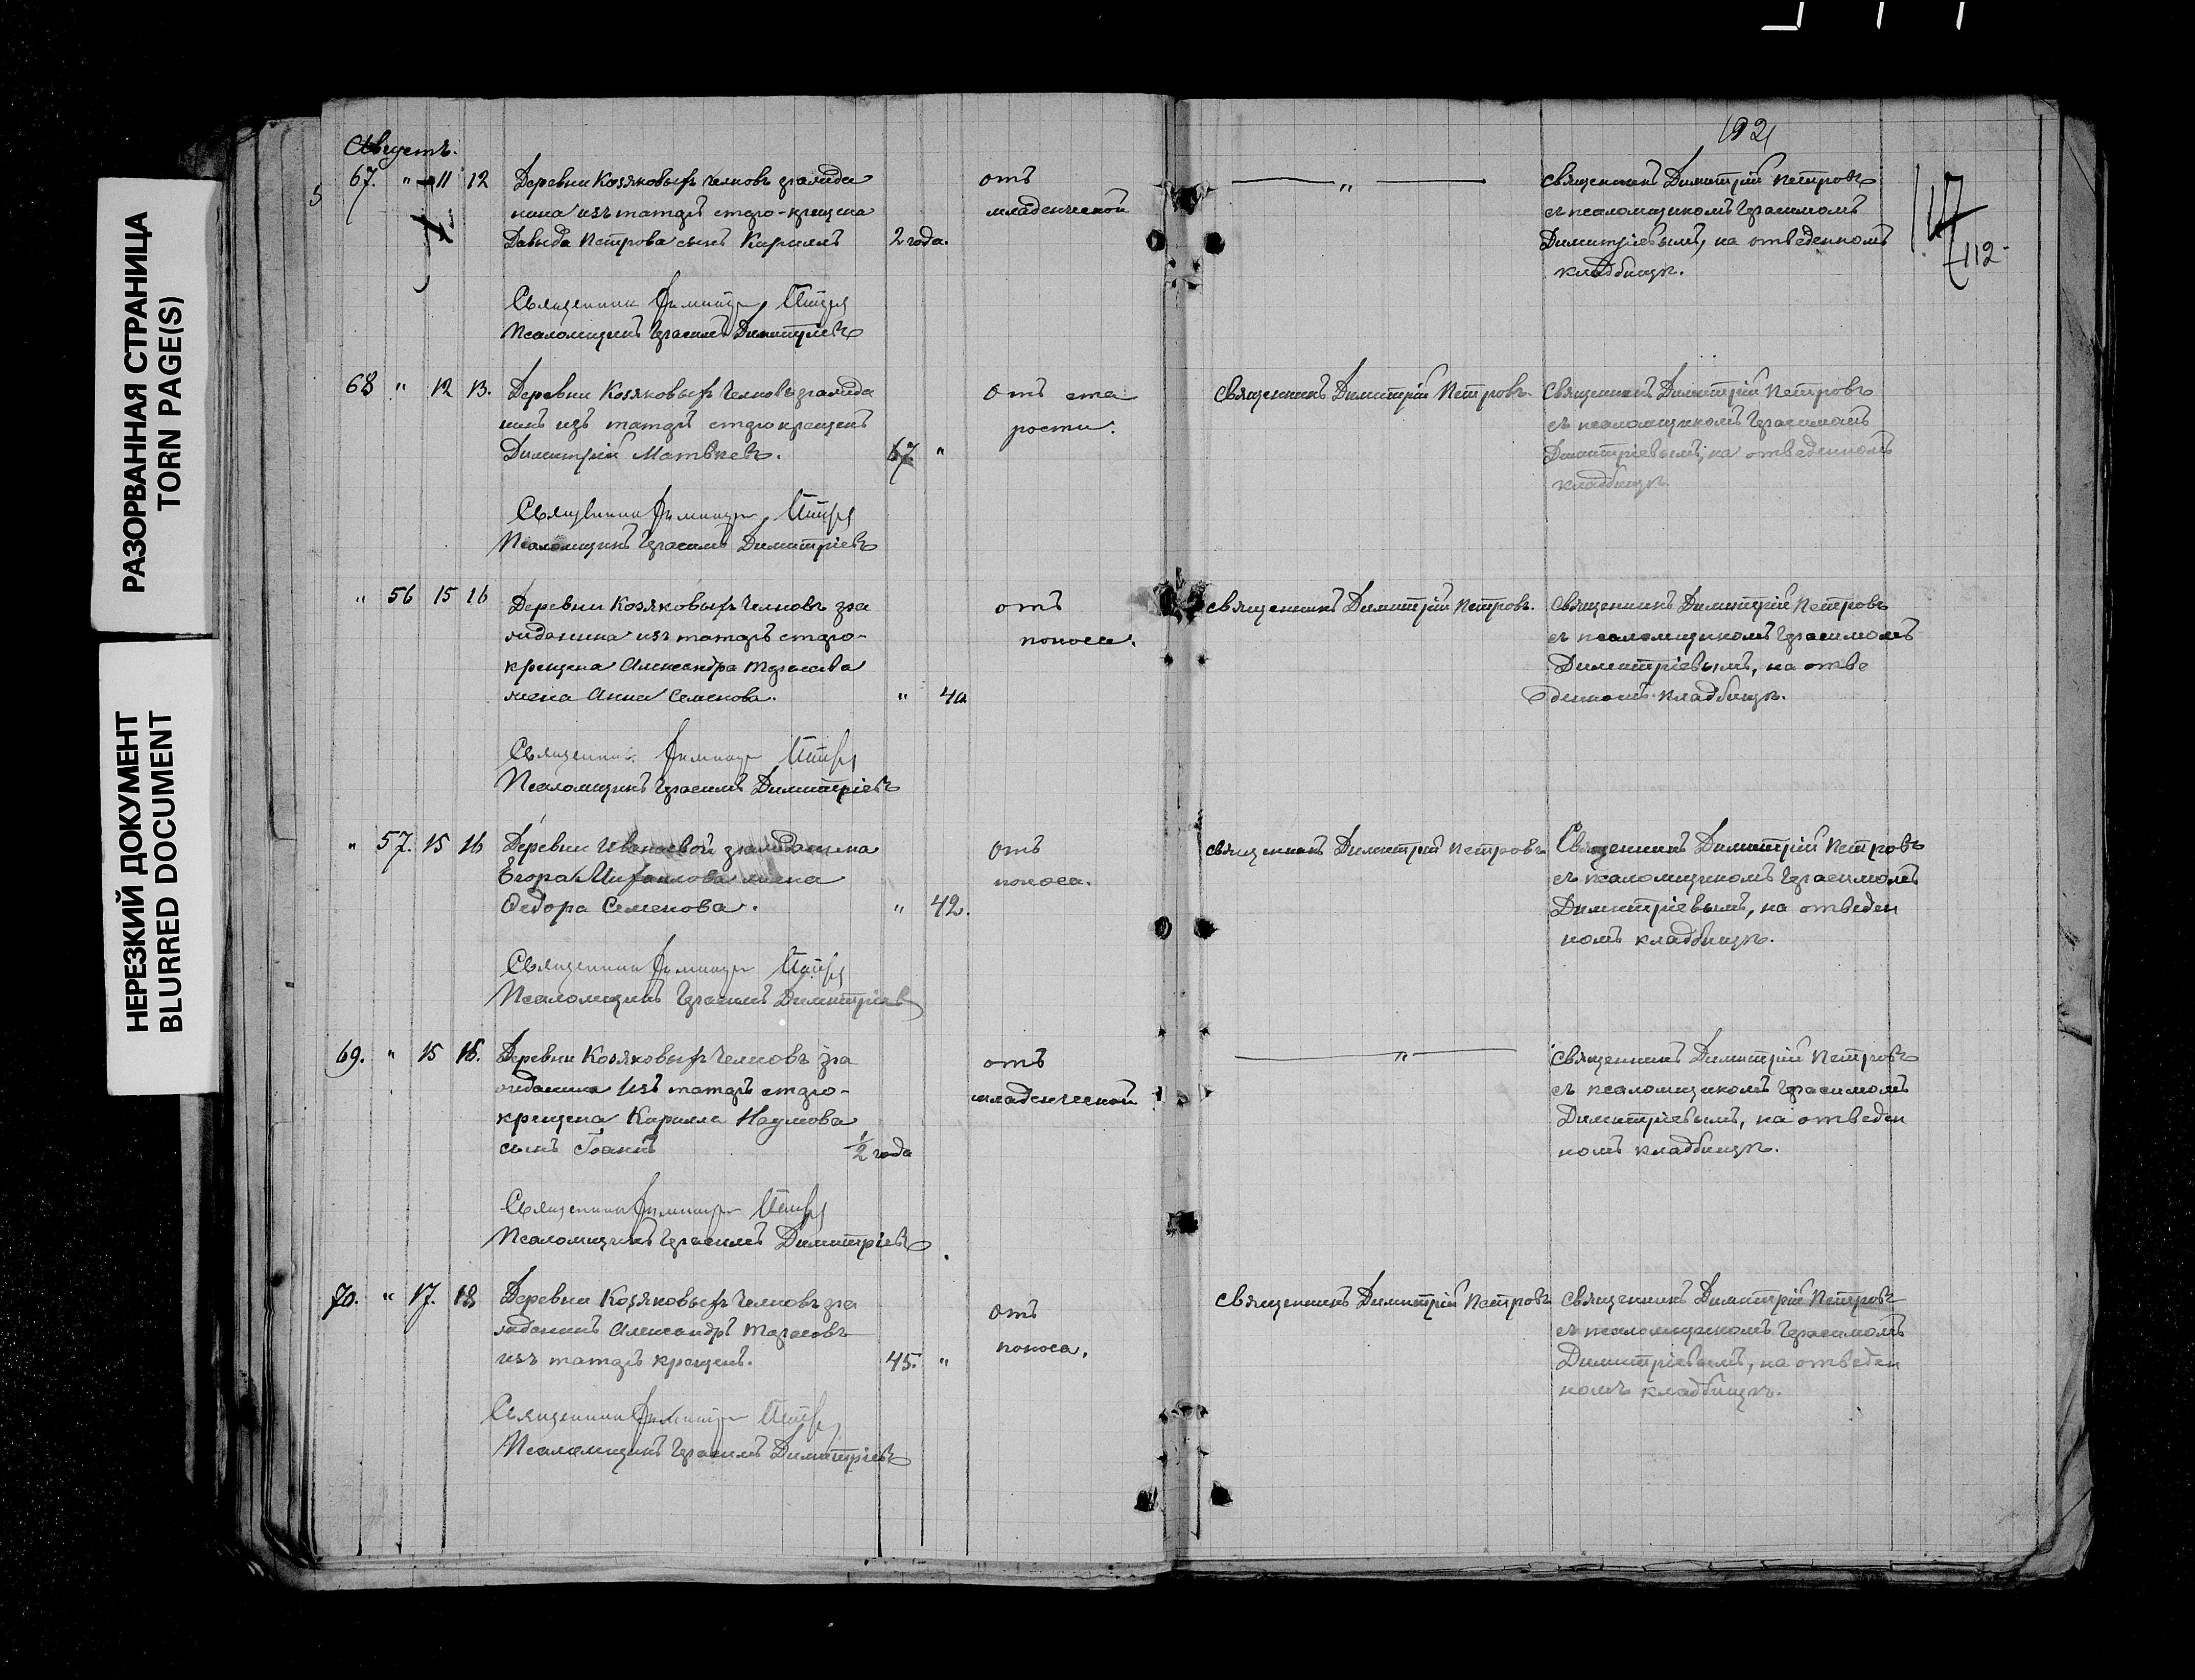 РАЗОРВАННАЯ СТРАНИЦА
TORN PAGE(S)
НЕРЕЗКИЙ ДОКУМЕНТ
BLURRED DOCUMENT
1921
Августъ.
67. " 11 12 Деревни Козяковыхъ Челновъ гражда
нина изъ татаръ старо-крещена
Давыда Петрова сынъ Кириллъ 2 года.
отъ
младенческой
"
Священникъ Димитрій Петровъ
съ псаломщикомъ Герасимомъ
Димитріевымъ, на отведенномъ
кладбищѣ.
112
Священникъ Димитрій Петровъ
Псаломщикъ Герасимъ Димитріевъ
68 " 12 13. Деревни Козяковыхъ Челновъ гражда
нинъ изъ татаръ старокрещенъ
Димитрій Матвѣевъ. 67 "
отъ ста
рости.
Священникъ Димитрій Петровъ.
Священникъ Димитрій Петровъ
съ псаломщикомъ Герасимомъ
Димитріевымъ, на отведенномъ
кладбищѣ.
Священникъ Димитрій Петровъ
Псаломщикъ Герасимъ Димитріевъ
" 56 15 16 Деревни Козяковыхъ Челновъ гра
жданина изъ татаръ старо-
крещена Александра Тарасова
жена Анна Семенова. " 40.
отъ
поноса.
Священникъ Димитрій Петровъ.
Священникъ Димитрій Петровъ
съ псаломщикомъ Герасимомъ
Димитріевымъ, на отве
денномъ кладбищѣ.
Священникъ Димитрій Петровъ
Псаломщикъ Герасимъ Димитріевъ
" 57. 15 16 Деревни Ивановой гражданина
Егора Михаилова жена
Ѳедора Семенова. " 42.
отъ
поноса.
Священникъ Димитрій Петровъ
Священникъ Димитрій Петровъ
съ псаломщикомъ Герасимомъ
Димитріевымъ, на отведен
номъ кладбищѣ.
Священникъ Димитрій Петровъ
Псаломщикъ Герасимъ Димитріевъ
69. " 15 16. Деревни Козяковыхъ Челновъ гра
жданина изъ татаръ старо-
крещена Кирилла Наумова
сынъ Іоаннъ 1/2 года
отъ
младенческой
"
Священникъ Димитрій Петровъ
съ псаломщикомъ Герасимомъ
Димитріевымъ, на отведен
номъ кладбищѣ.
Священникъ Димитрій Петровъ
Псаломщикъ Герасимъ Димитріевъ
70. " 17. 18 Деревни Козяковыхъ Челновъ гра
жданинъ Александръ Тарасовъ
изъ татаръ крещенъ. 45. "
отъ
поноса.
Священникъ Димитрій Петровъ
Священникъ Димитрій Петровъ
съ псаломщикомъ Герасимомъ
Димитріевымъ, на отведен
номъ кладбищѣ.
Священникъ Димитрій Петровъ
Псаломщикъ Герасимъ Димитріевъ